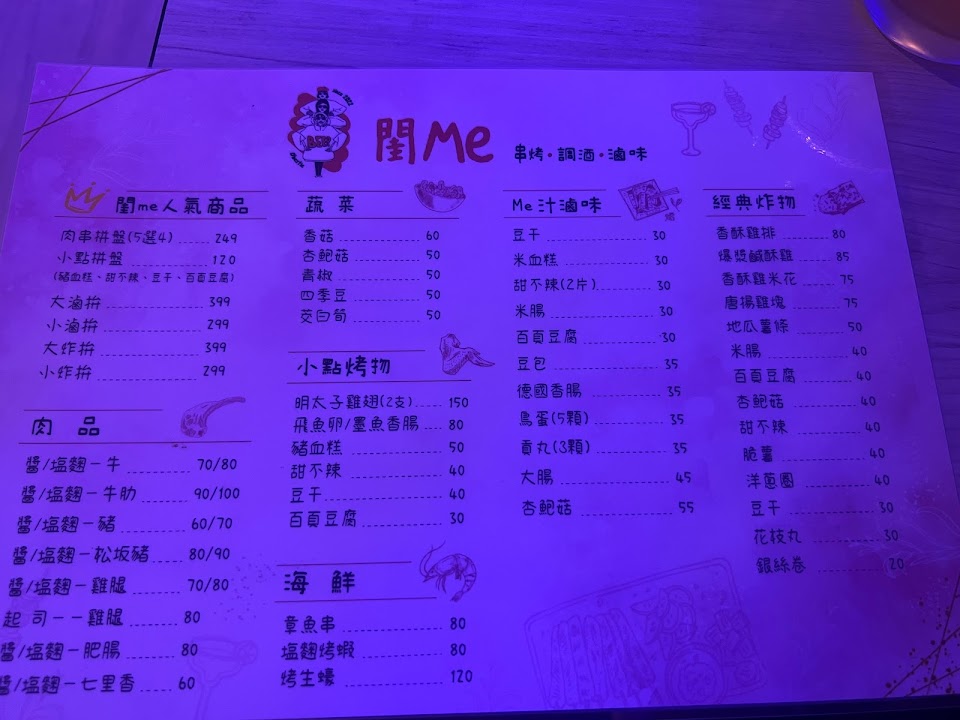 閨Me
串烤。調酒。滷味
閨me人氣商品
肉串拼盤(5選4) 249
小點拼盤 120
(豬血糕、甜不辣、豆干、百頁豆腐)
大滷拚 399
小滷拚 299
大炸拚 399
小炸拚 299
肉品
醬/塩麴-牛 70/80
醬/塩麴-牛肋 90/100
醬/塩麴-豬 60/70
醬/塩麴-松坂豬 80/90
醬/塩麴-雞腿 70/80
起司--雞腿 80
醬/塩麴-肥腸 80
醬/塩麴-七里香 60
蔬菜
香菇 60
杏鮑菇 50
青椒 50
四季豆 50
茭白筍 50
小點烤物
明太子雞翅(2支) 150
飛魚卵/墨魚香腸 80
豬血糕 50
甜不辣 40
豆干 40
百頁豆腐 30
海鮮
章魚串 80
塩麴烤蝦 80
烤生蠔 120
Me汁滷味
豆干 30
米血糕 30
甜不辣(2片) 30
米腸 30
百頁豆腐 30
豆包 35
德國香腸 35
鳥蛋(5顆) 35
貢丸(3顆) 35
大腸 45
杏鮑菇 55
經典炸物
香酥雞排 80
爆漿鹹酥雞 85
香酥雞米花 75
唐揚雞塊 75
地瓜薯條 50
米腸 40
百頁豆腐 40
杏鮑菇 40
甜不辣 40
脆薯 40
洋蔥圈 40
豆干 30
花枝丸 30
銀絲卷 20